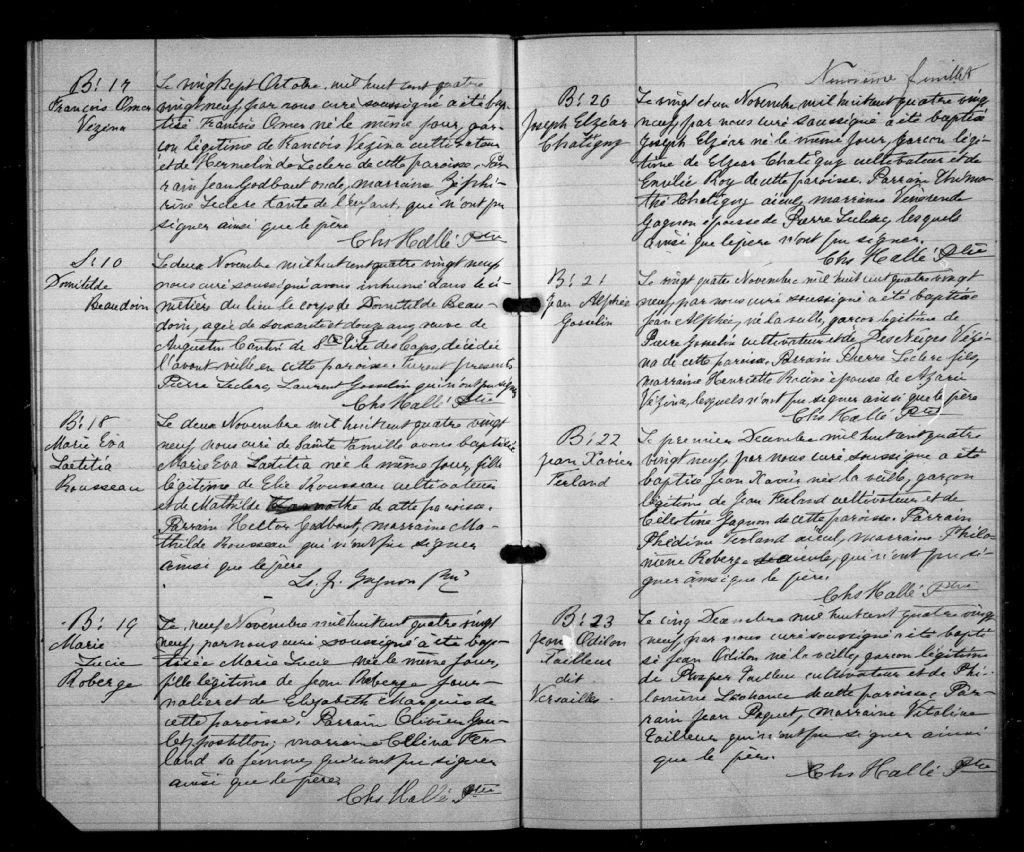 B: 17
François Omer
Vézina
Le vingt sept Octobre, mil huit cent quatre
vingt neuf, par nous curé soussigné a été bap
tisé François Omer né le même jour, gar
çon légitime de François Vézina cultivateur
et de Hermeline Leclerc de cette paroisse. Par
rain Jean Godbout oncle, marraine Zéphi-
rine Leclerc tante de l'enfant, qui n'ont pu
signer ainsi que le père
Chs Hallé Ptre
S: 10
Domitilde
Beaudoin
Le deux Novembre mil huit cent quatre vingt neuf
nous curé soussigné avons inhumé dans le ci-
metière du lieu le corps de Domitilde Beau-
doin, agée de soixante et douze ans, veuve de
Augustin Cantin de Ste Fête des Caps, décédée
l'avant veille en cette paroisse. Furent présents
Pierre Leclerc, Laurent Gosselin qui n'ont pu signer
Chs Hallé Ptre
B: 18
Marie Eva
Laetitia
Rousseau
Le deux Novembre mil huit cent quatre vingt
neuf nous curé de Sainte Famille avons baptisé
Marie Eva Laetitia née le même jour, fille
légitime de Elie Rousseau cultivateur
et de Mathilde de cette paroisse.
Parrain Hector Godbout, marraine Ma-
thilde Rousseau qui n'ont pu signer
ainsi que le père
Ls. J. Gagnon Ptre
B: 19
Marie
Lucie
Roberge
Le neuf Novembre mil huit cent quatre vingt
neuf, par nous curé soussigné a été bap
tisée Marie Lucie née le même jour,
fille légitime de Jean Roberge jour-
nalier et de Elizabeth Marquis de
cette paroisse. Parrain Olivier Gou-
let, postillon; marraine Célina Fer-
land sa femme, qui n'ont pu signer
ainsi que le père
Chs Hallé Ptre
Neuvième feuillet
B: 20
Joseph Elzéar
Chatigny
Le vingt et un Novembre mil huit cent quatre vingt
neuf, par nous curé soussigné a été baptisé
Joseph Elzéar né le même jour, garçon légi-
time de Elzear Chatigny cultivateur et de
Emélie Roy de cette paroisse. Parrain Thimo-
thé Chatigny aïeul, marraine Vénérende
Gagnon épouse de Pierre Leclerc, lesquels
ainsi que le père n'ont pu signer.
Chs Hallé Ptre
B: 21
Jean Alphée
Gosselin
Le vingt quatre Novembre mil huit cent quatre vingt
neuf, par nous curé soussigné a été baptisé
Jean Alphée, né la veille, garçon légitime de
Pierre Gosselin cultivateur et de Des Neiges Vézi-
na de cette paroisse. Parrain Pierre Leclerc fils,
marraine Henriette Racine épouse de Azarie
Vézina, lesquels n'ont pu signer ainsi que le père
Chs Hallé Ptre
B: 22
Jean Xavier
Ferland
Le premier Décembre mil huit cent quatre
vingt neuf, par nous curé soussigné a été
baptisé Jean Xavier né la veille, garçon
légitime de Jean Ferland cultivateur et de
Célestine Gagnon de cette paroisse. Parrain
Phédime Ferland aïeul, marraine Philo-
mène Roberge aïeule, qui n'ont pu si-
gner ainsi que le père.
Chs Hallé Ptre
B: 23
Jean Odilon
Tailleur
dit
Versailles
Le cinq Décembre mil huit cent quatre vingt
neuf, par nous curé soussigné a été bapti
sé Jean Odilon né la veille, garçon légitime
de Prosper Tailleur cultivateur et de Phi-
lomène Lachance de cette paroisse. Par-
rain Jean Paquet, marraine Vitaline
Tailleur qui n'ont pu signer ainsi
que le père.
Chs Hallé Ptre